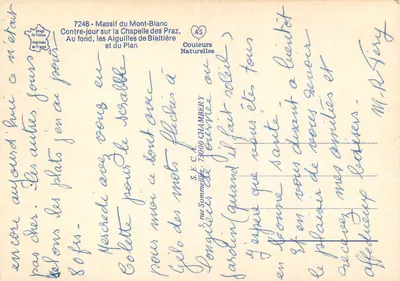 7248 - Massif du Mont-Blanc
Contre-jour sur la Chapelle des Praz,
Au fond, les Aiguilles de Blaitière
et du Plan
AS
Couleurs
Naturelles
S. E. C. A.
rue Sommeiller - 73000 CHAMBERY
encore aujourd'hui ce n'était
pas cher. Les autres jours
selons les plats j'en ai pour
80 frs.
Mercredi avec vous en
Colette pour le scrabble
pour moi ce sont avec
Gelo des mots fléchés à
longueurs de journée au
jardin (quand il fait soleil)
J'espère que vous êtes tous
en bonne santé.
Et en vous disant à bientôt
le plaisir de vous revoir
recevez mes amitiés et
affectueux baisers.
M. R.